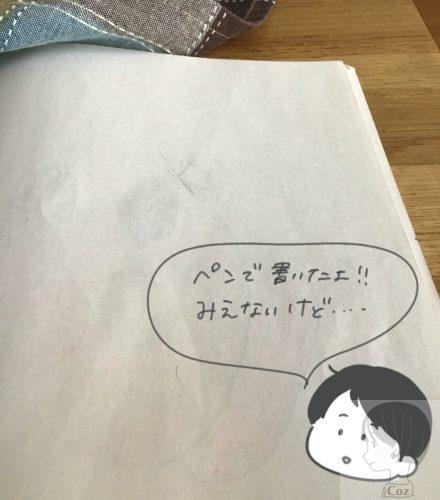 ペンで書いたよ!!
みえないけど・・・・
Coz